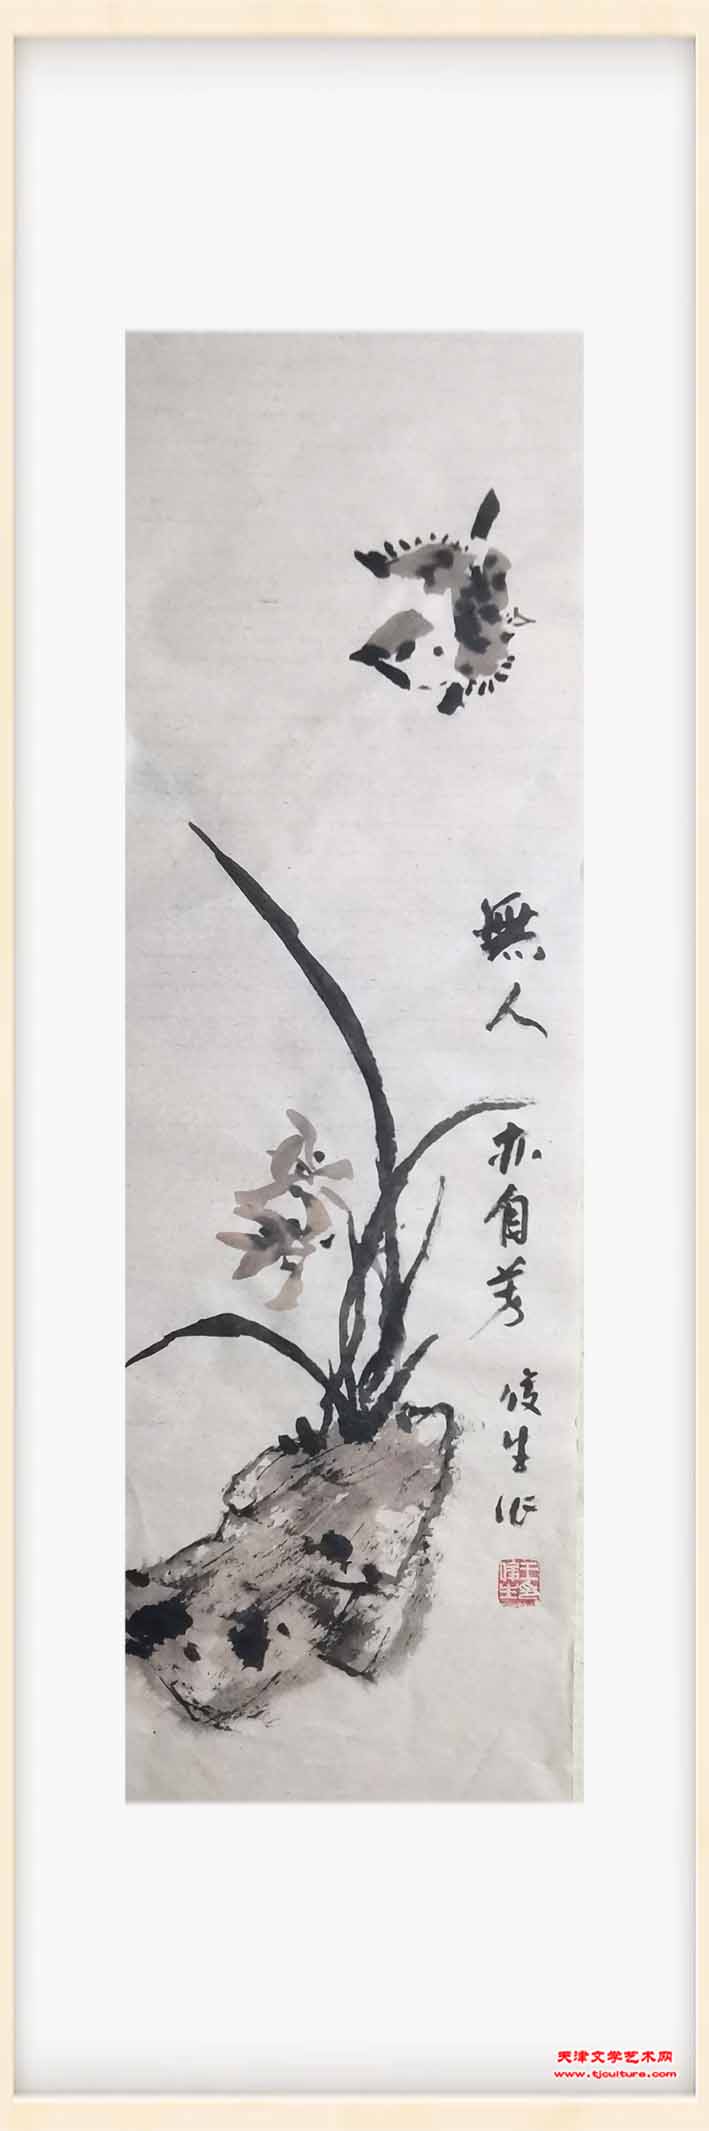 無人亦自芳
俊生作
王俊生
天津文学艺术网
www.tjculture.com